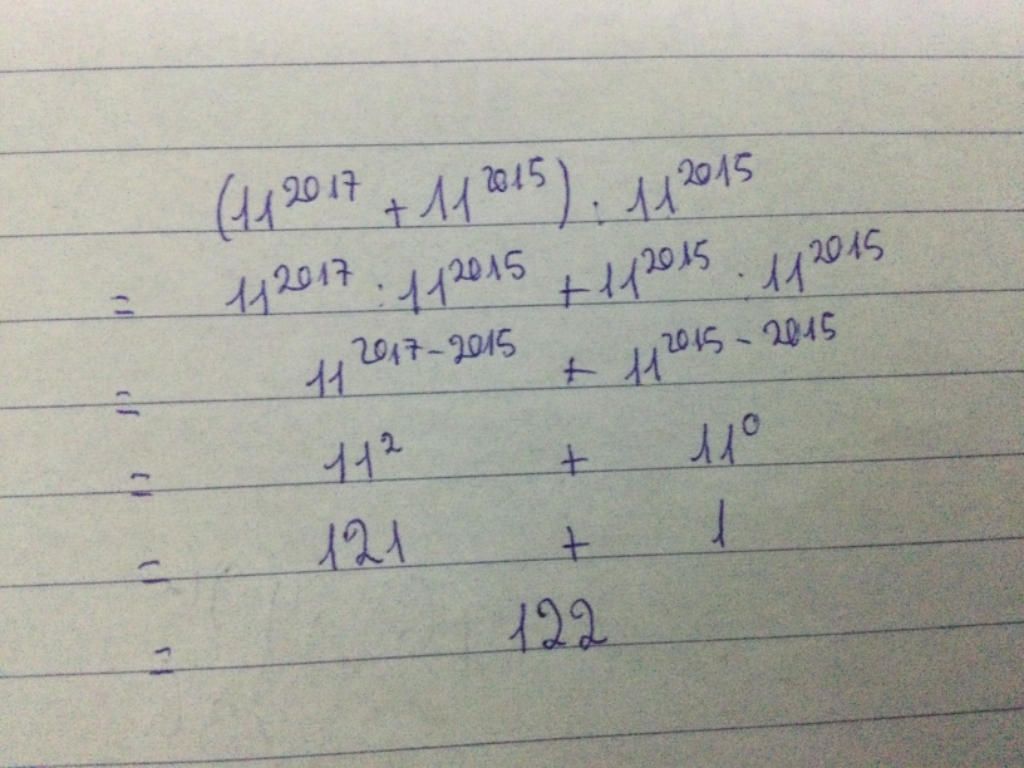 (11²⁰¹⁷ + 11²⁰¹⁵) : 11²⁰¹⁵
= 11²⁰¹⁷ : 11²⁰¹⁵ + 11²⁰¹⁵ : 11²⁰¹⁵
= 11²⁰¹⁷⁻²⁰¹⁵ + 11²⁰¹⁵⁻²⁰¹⁵
= 11² + 11⁰
= 121 + 1
= 122